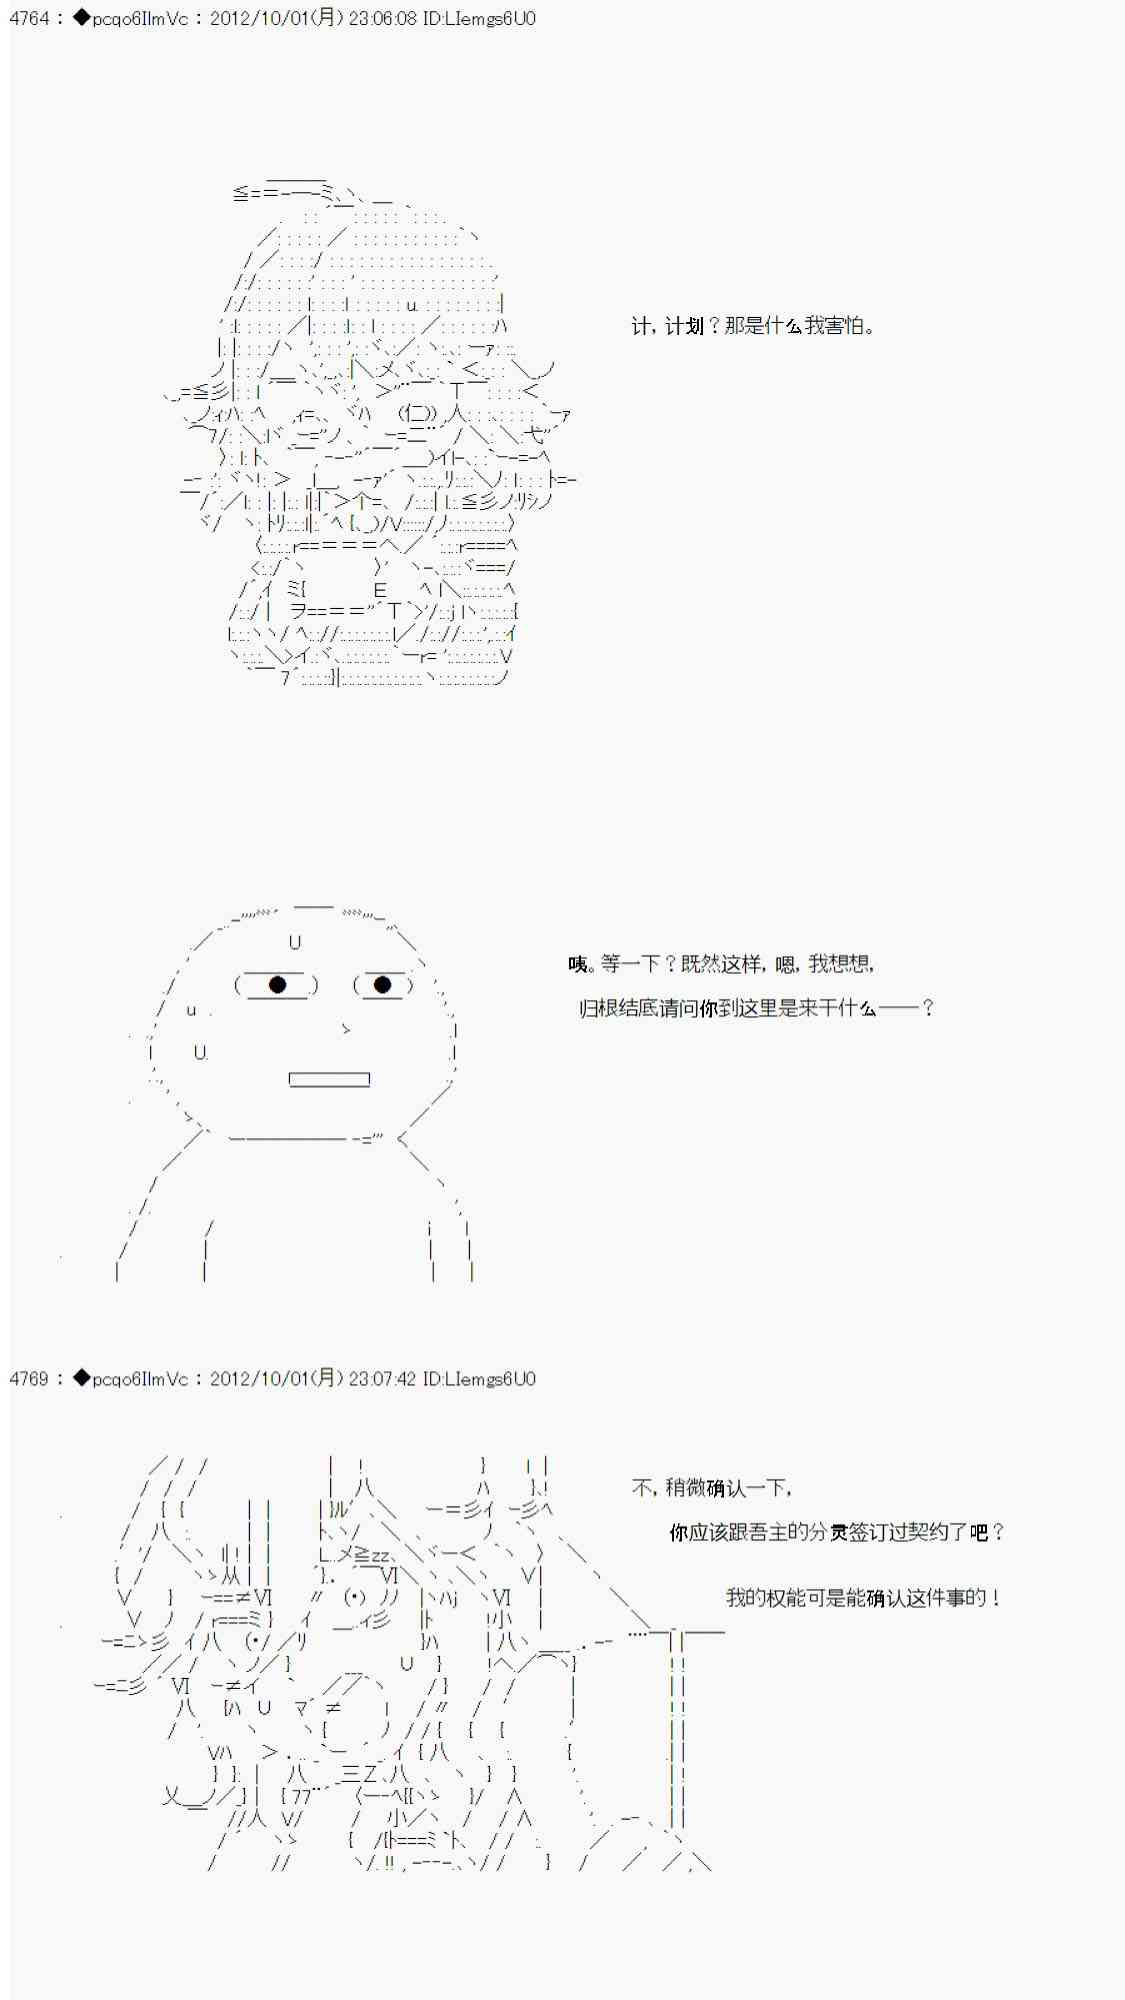 4764 : ◆pcqo6IlmVc : 2012/10/01(月) 23:06:08 ID:LIemgs6U0
计, 计划? 那是什么我害怕。
咦。等一下? 既然这样, 嗯, 我想想,
归根结底请问你到这里是来干什么——?
4769 : ◆pcqo6IlmVc : 2012/10/01(月) 23:07:42 ID:LIemgs6U0
不, 稍微确认一下,
你应该跟吾主的分灵签订过契约了吧?
我的权能可是能确认这件事的!